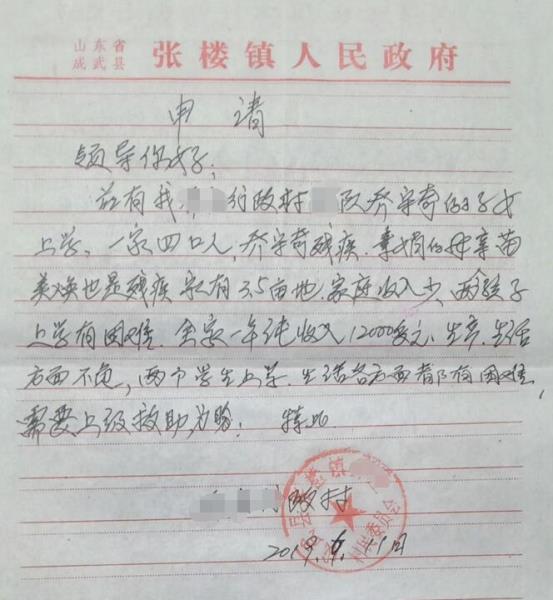 山东省
成武县 张楼镇人民政府
申请
领导你好:
兹有我 行政村 队乔守奇的子女
上学、一家四口人,乔守奇残疾.妻 的母亲苗
美焕也是残疾 家有3.5亩地.家庭收入少,两个孩子
上学有困难.全家一年纯收入12000多元.生产.生活
方面不负,两个学生上学.生活各方面都有困难,
需要上级救助为盼! 特此
行政村
2019.6.11日
楼镇
村民委员会